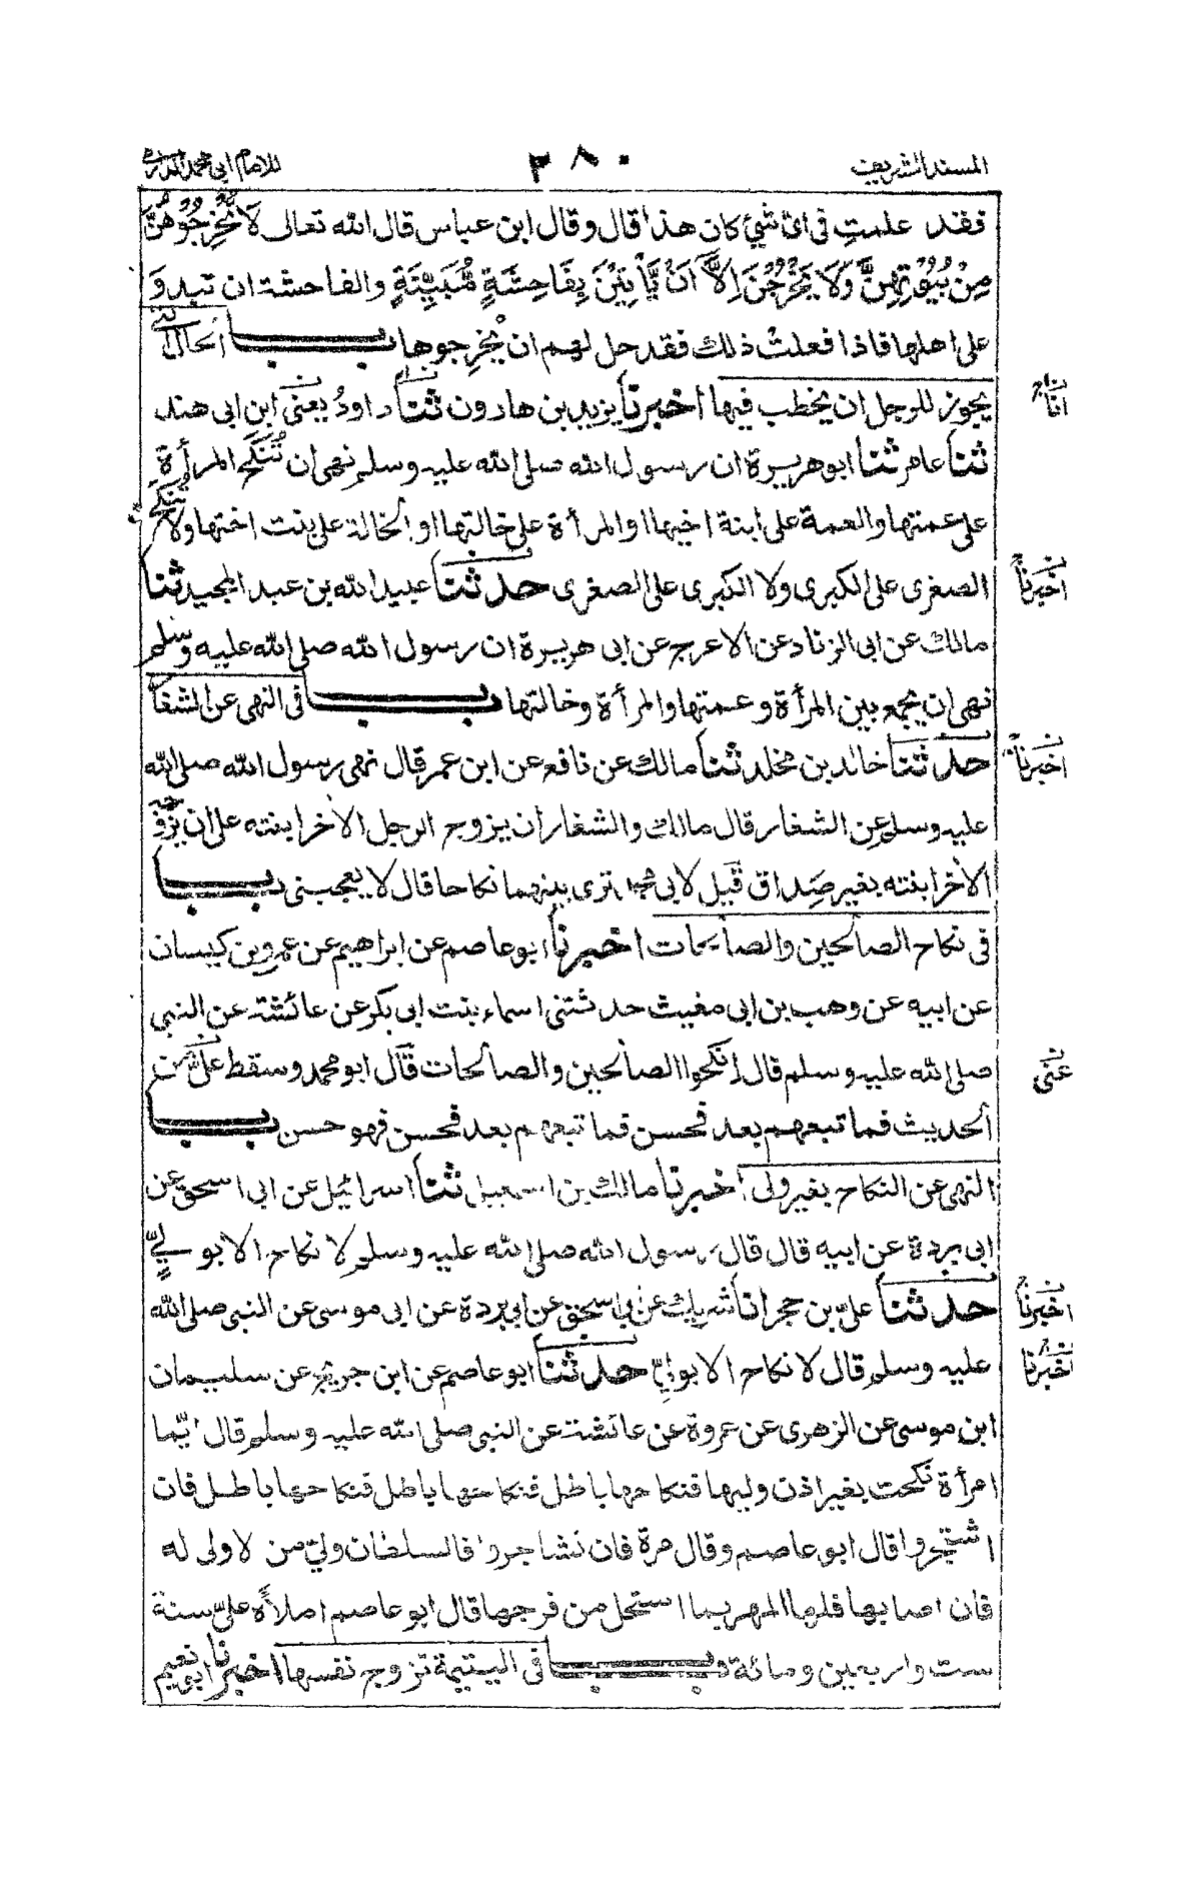 المسند الشريف
٢٨٠
للامام ابي محمد الدارمي
فقد علمت فى اى شيئ كان هذا قال وقال ابن عباس قال الله تعالى لَا تُخْرِجُوْهُنَّ
مِنْ بُيُوْتِهِنَّ وَلَا يَخْرُجْنَ اِلَّا اَنْ يَّاْتِيْنَ بِفَاحِشَةٍ مُّبَيِّنَةٍ والفاحشة ان تبدو
على اهلها فاذا فعلت ذلك فقد حل لهم ان يُخرِجوها باب الحال التي
يجوز للرجل ان يخطب فيها اخبرنا يزيد بن هارون ثنا داودُ يعنى ابن ابى هند
اناَ
ثنا عامر ثنا ابو هريرة ان رسول الله صلى الله عليه وسلم نهى ان تُنْكَحَ المرأة
على عمتها والعمة على ابنة اخيها او المرأة على خالتها او الخالة على بنت اختها ولا تُنْكَحُ
الصغرى على الكبرى ولا الكبرى على الصغرى حدثنا عبيد الله بن عبد المجيد ثنا
اخبرنا
مالك عن ابى الزناد عن الاعرج عن ابى هريرة ان رسول الله صلى الله عليه وسلم
نهى ان يجمع بين المرأة وعمتها والمرأة وخالتها باب فى النهى عن الشغار
حدثنا خالد بن مخلد ثنا مالك عن نافع عن ابن عمر قال نهى رسول الله صلى الله
اخبرنا
عليه وسلم عن الشغار قال مالك والشغار ان يزوج الرجل الاٰخر ابنته على ان يُزَوِّجه
الاٰخر ابنته بغير صِداق قيل لابى محمد ترى بينهما نكاحا قال لا يعجبنى باب
فى نكاح الصالحين والصالحات اخبرنا ابو عاصم عن ابراهيم عن عمرو بن كيسان
عن ابيه عن وهب بن ابى مغيث حدثتنى اسماء بنت ابى بكر عن عائشة عن النبى
صلى الله عليه وسلم قال اِنْكحوا الصالحين والصالحات قال ابو محمد وسقط علىَّ من
عَنِّى
الحديث فما تبعهم بعد فحسن فما تبعهم بعد فحسن فهو حسن باب
النهى عن النكاح بغير ولى اخبرنا مالك بن اسمعيل ثنا اسرائيل عن ابى اسحق عن
ابى بردة عن ابيه قال قال رسول الله صلى الله عليه وسلم لا نكاح الا بولىٍّ
حدثنا علىّ بن حجر انا شريك عن ابى اسحق عن ابى بردة عن ابى موسى عن النبى صلى الله
اخبرنا
عليه وسلم قال لا نكاح الا بولىٍّ حدثنا ابو عاصم عن ابن جريج عن سليمان
اخبرنا
ابن موسى عن الزهرى عن عروة عن عائشة عن النبى صلى الله عليه وسلم قال ايّما
امرأة نكحت بغير اذن وليها فنكاحها باطل فنكاحها باطل فنكاحها باطل فان
اشتجروا قال ابو عاصم وقال مرة فان تشاجروا فالسلطان ولىّ من لا ولى له
فان اصابها فلها المهر بما استحل من فرجها قال ابو عاصم املاَه علىّ سنة
ست واربعين ومائة باب فى اليتيمة تزوج نفسها اخبرنا ابو نعيم